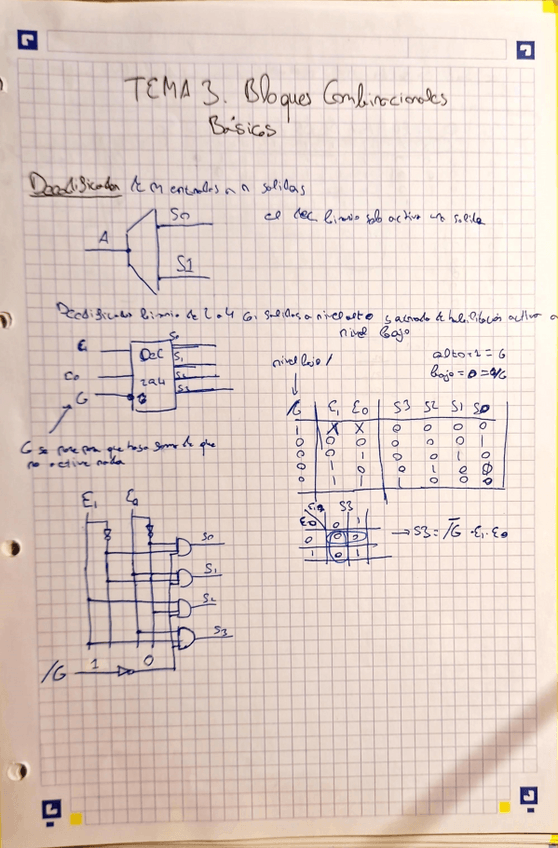 TEMA 3. Bloques Combinacionales
Básicos
Decodificador de m entradas a n salidas
el dec. binario solo activa una salida
A
S0
S1
Decodificador binario de 2 a 4 con salidas a nivel alto y entrada de habilitación activa a
nivel bajo
E1
E0
G
DEC
2a4
S0
S1
S2
S3
nivel bajo /
alto = 1 = G
bajo = 0 = /G
G se pone para que haya forma de que
no active nada
/G E1 E0 S3 S2 S1 S0
1 X X 0 0 0 0
0 0 0 0 0 0 1
0 0 1 0 0 1 0
0 1 0 0 1 0 0
0 1 1 1 0 0 0
E0 S3
0 1
0 0 0
1 0 1
→ S3 = /G · E1 · E0
E1 E0
S0
S1
S2
S3
/G 1 0